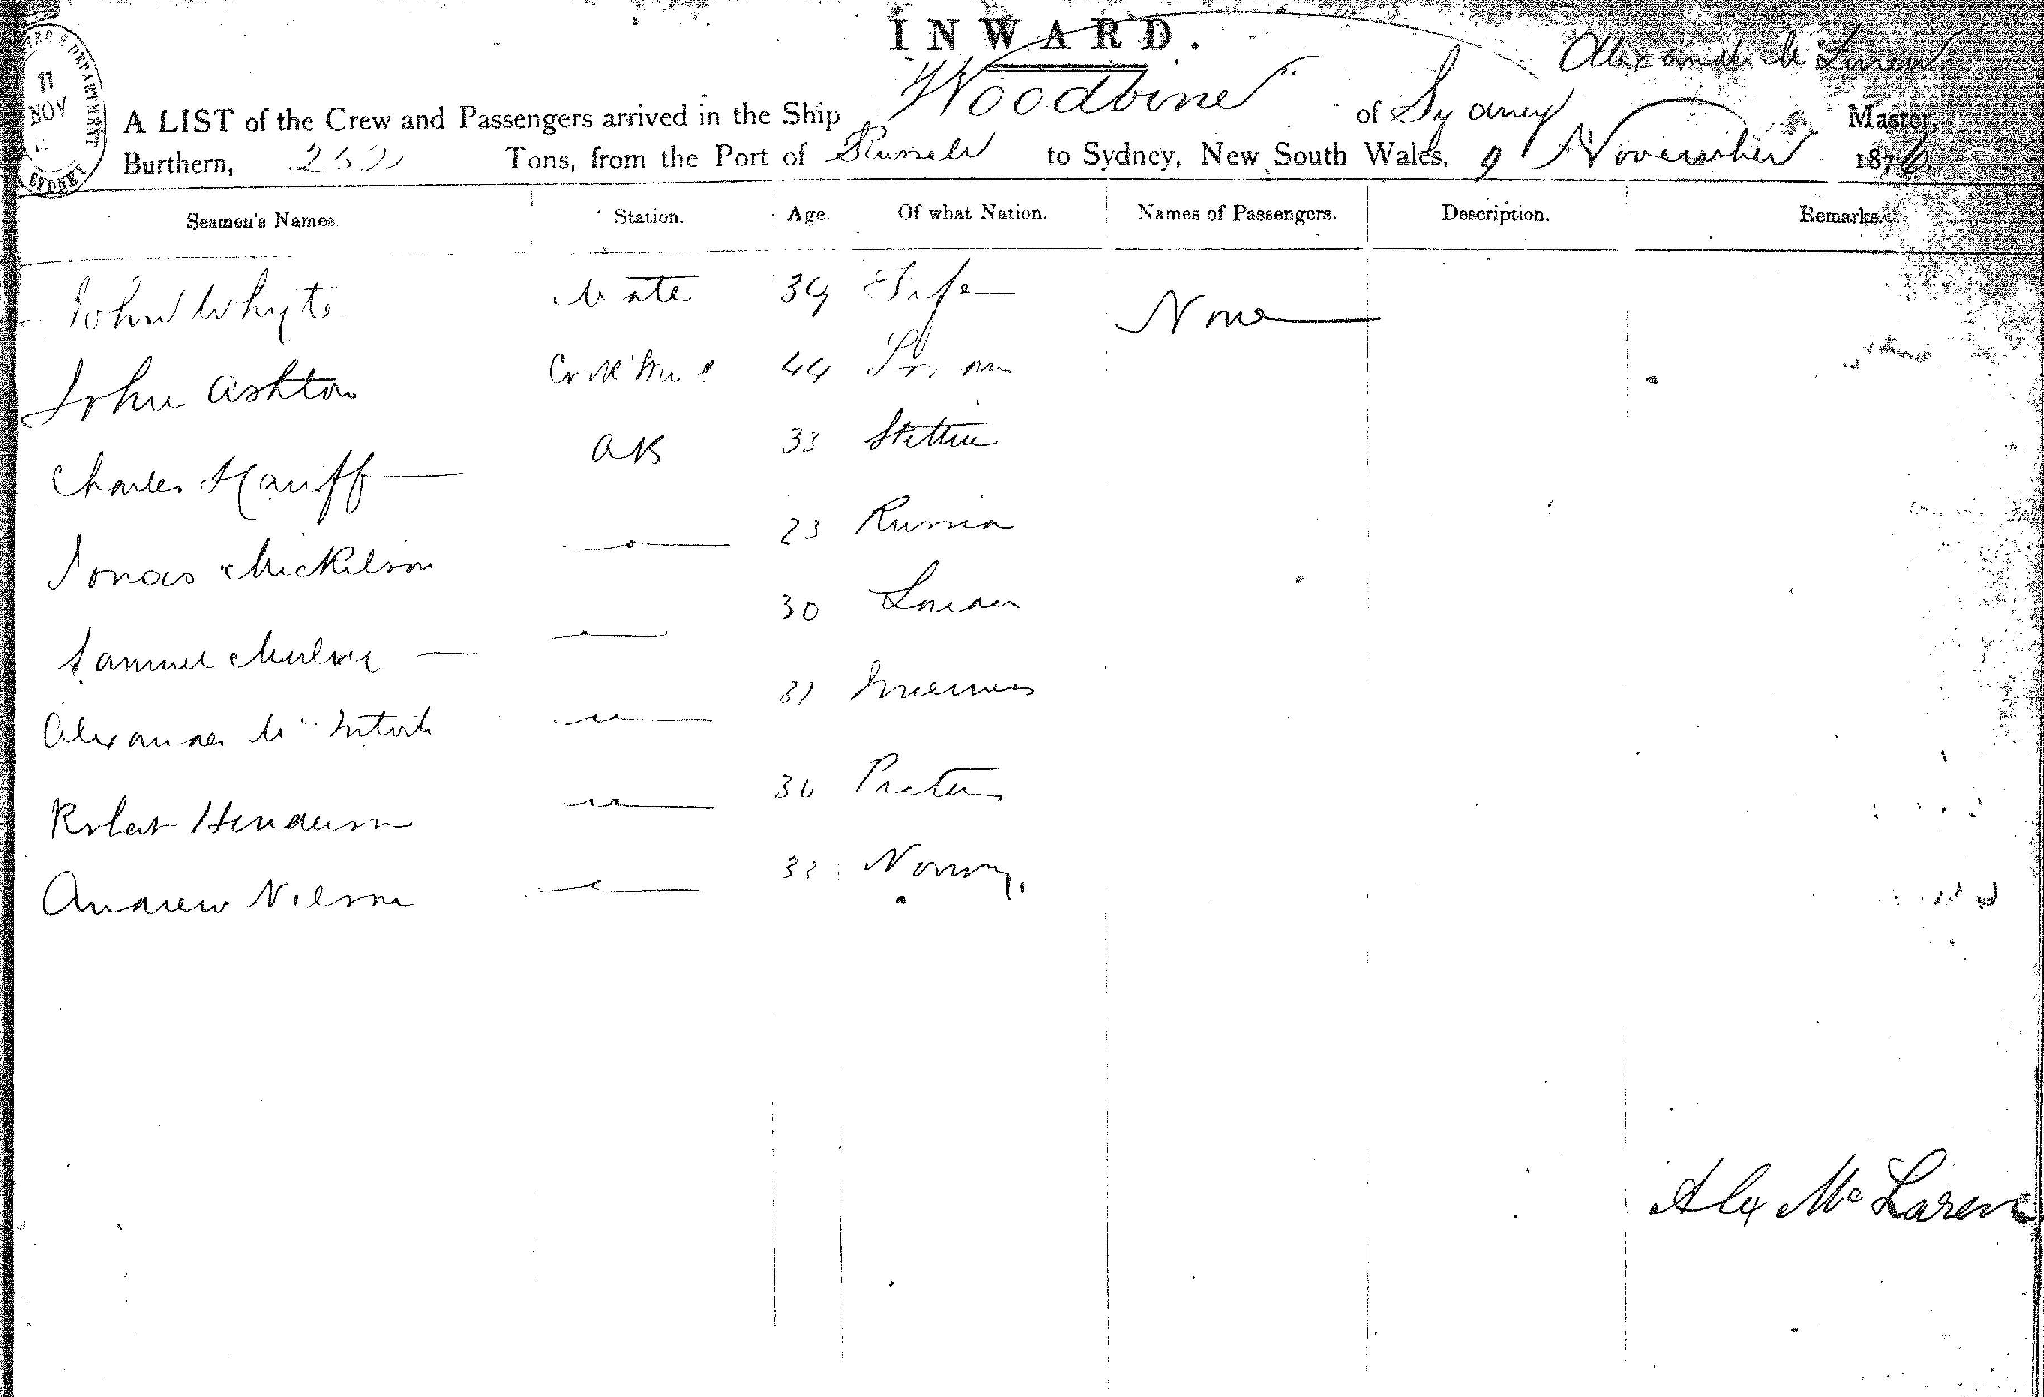 INWARD.
11
NOV
SYDNEY
Alexander Mc Laren
A LIST of the Crew and Passengers arrived in the Ship Woodbine of Sydney Master,
Burthern, Tons, from the Port of Russell to Sydney, New South Wales, 9 November 187
Seamen's Names. Station. Age. Of what Nation. Names of Passengers. Description. Remarks.
John Whyte Mate 39 Fife None
John Ashton 44
Charles Hauff AB 33 Stettin
Jonas Mickelson 23 Russia
Samuel 30 London
Alexander Mc Intosh 31 Inverness
Robert Henderson 36
Andrew Nilson 33 Norway
Alex Mc Laren